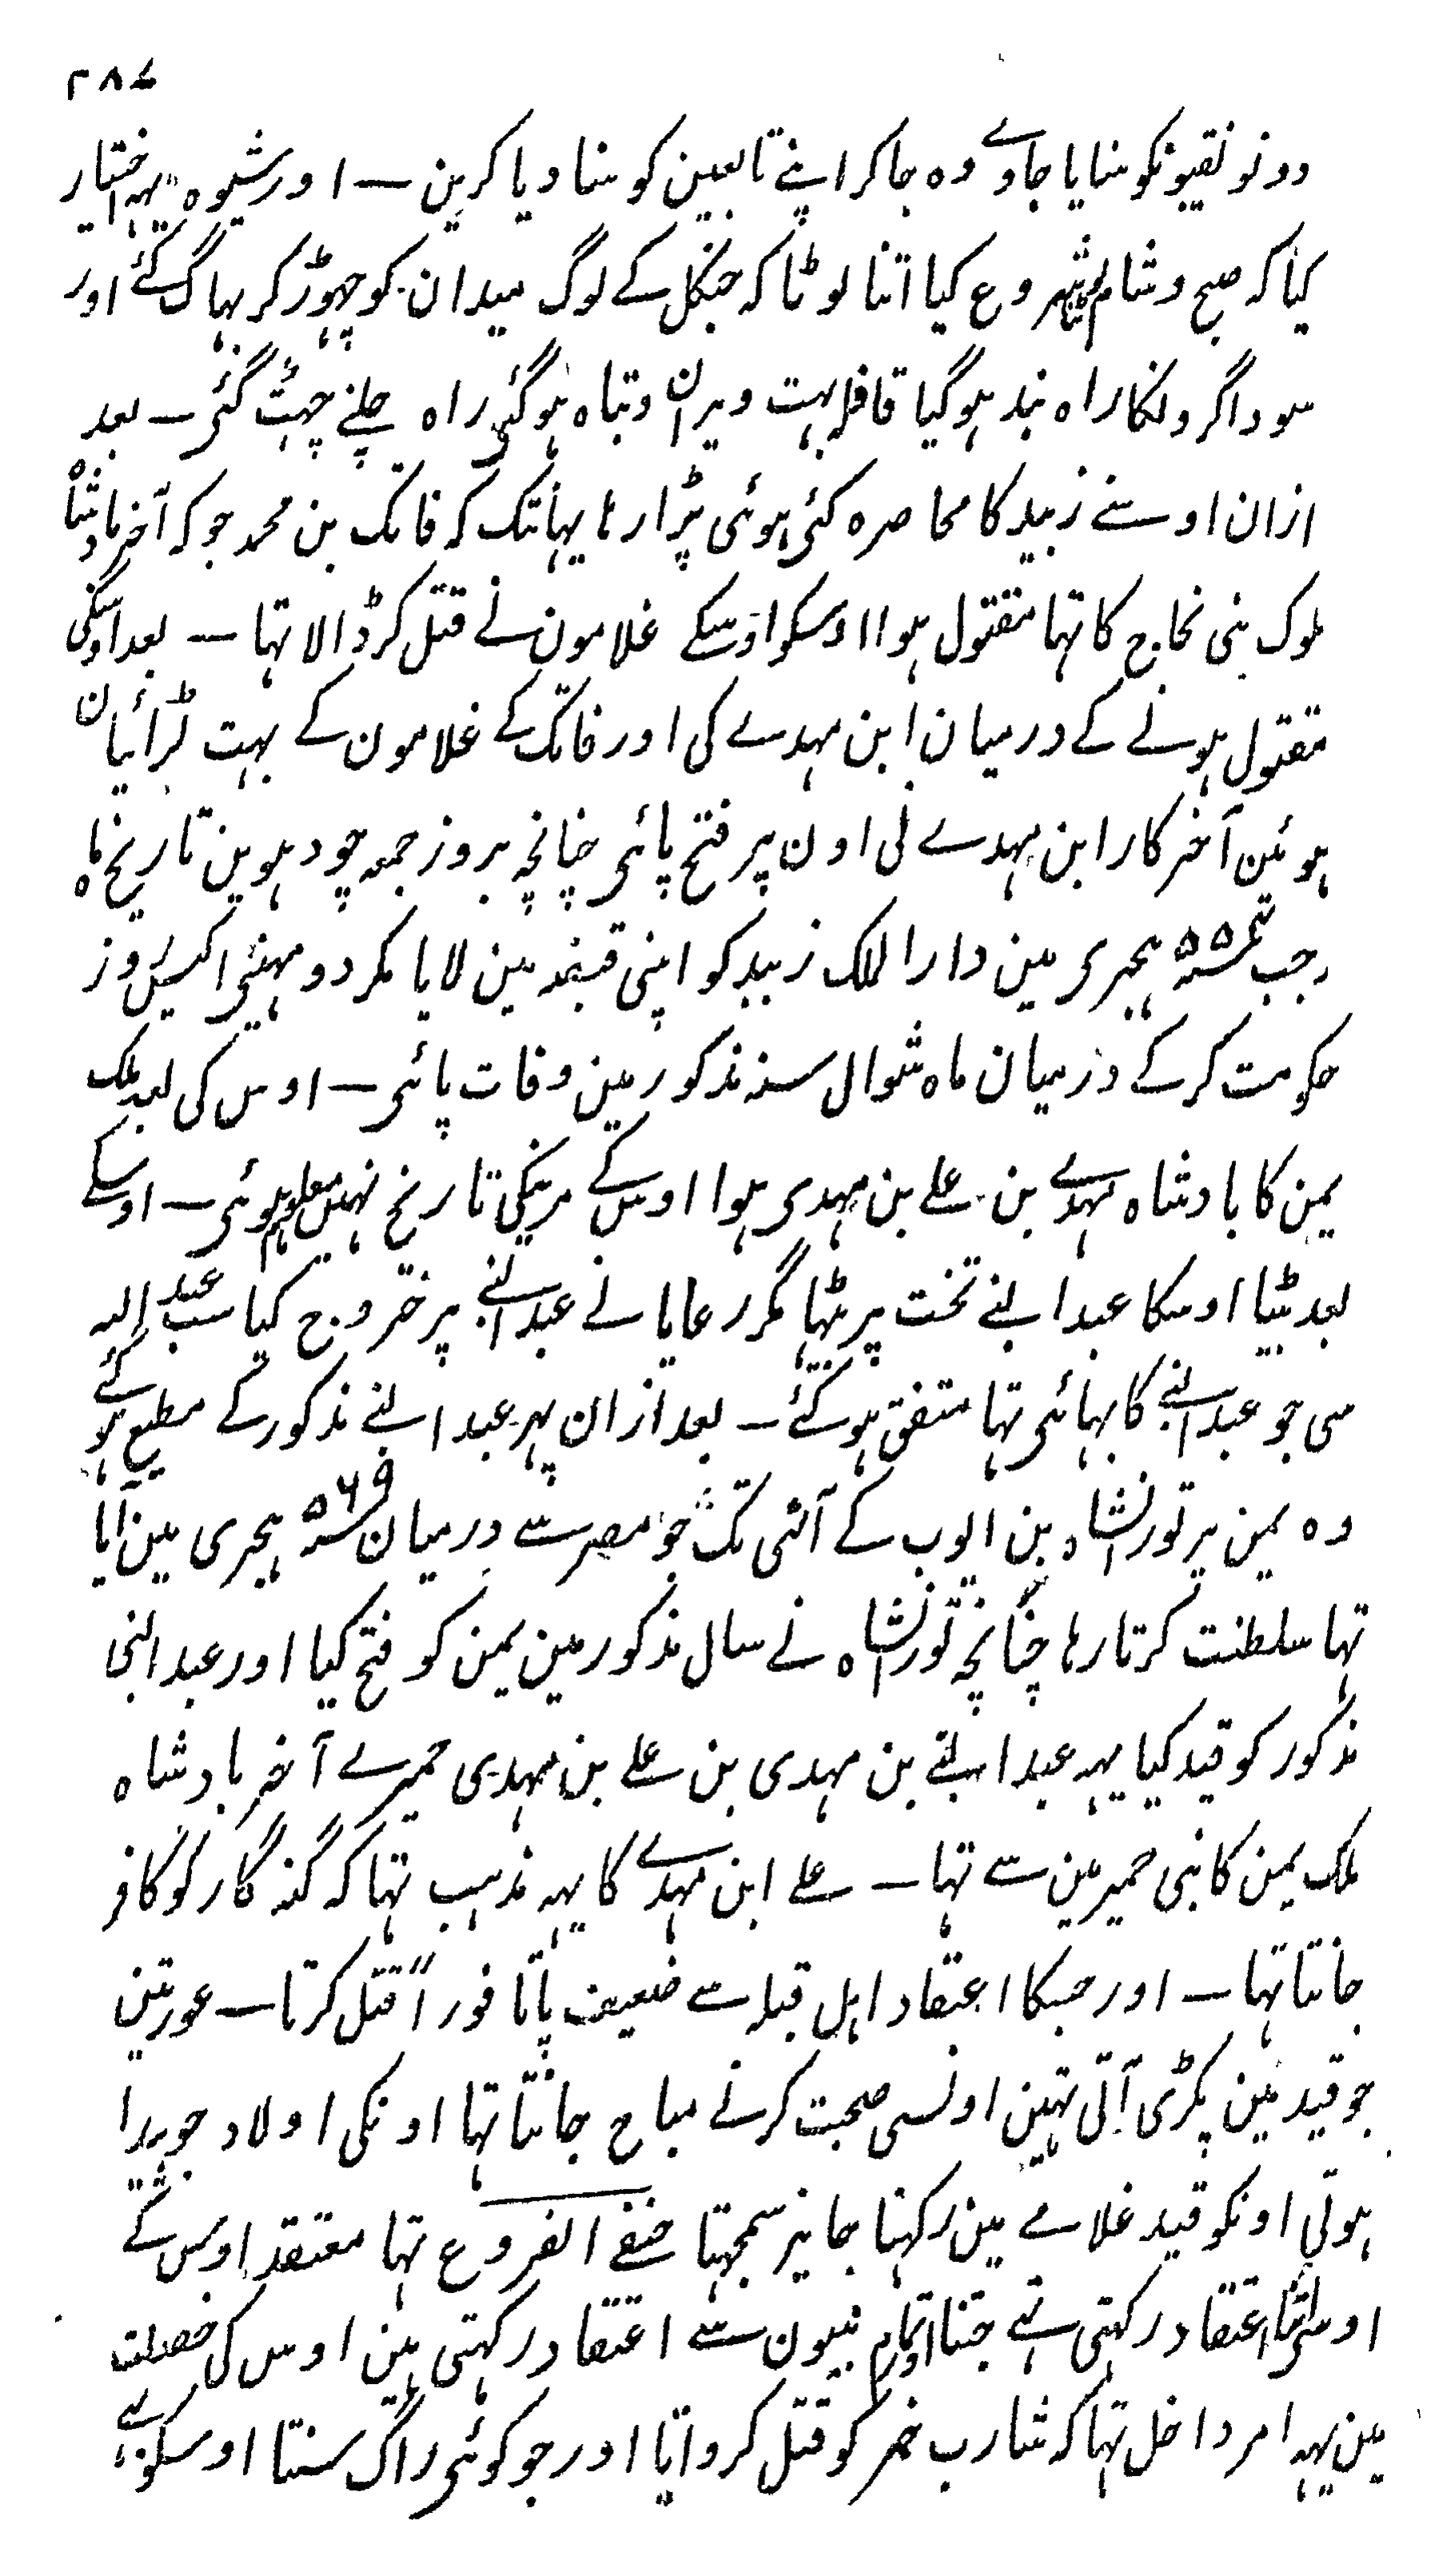 ۲۸۷
دونو نقیبونکو سنایا جاوے وہ جاکر اپنے تابعین کو سنا دیا کرین — اور شیوہ یہہ اختیار
کیا کہ صبح و شام لوٹنا شروع کیا اتنا لوٹا کہ جنگل کے لوگ میدان کو چہوڑ کر بہاگ گئے اور
سوداگرونکا راہ بند ہوگیا قافلہ بہت ویران و تباہ ہوگئی راہ چلنے چہٹ گئی — بعد
ازان اوسنے زبید کا محاصرہ کئی ہوئی پڑا رہا یہانتک کہ فاتک بن محمد جو کہ آخر بادشاہ
ملوک بنی نجاح کا تہا مقتول ہوا اوسکو اوسکے غلامون نے قتل کر ڈالا تہا — بعد اوسکی
مقتول ہونے کے درمیان ابن مہدے کی اور فاتک کے غلامون کے بہت لڑائیان
ہوئین آخر کار ابن مہدے نی اون پر فتح پائی چنانچہ بروز جمعہ چودہوین تاریخ ماہ
رجب ۵۵۴ سنہ ہجری مین دار الملک زبید کو اپنی قبضہ مین لایا مگر دو مہینی اکیس روز
حکومت کر کے درمیان ماہ شوال سنہ مذکور مین وفات پائی — اوس کی بعد ملک
یمن کا بادشاہ مہدے بن علے بن مہدی ہوا اوس کے مرنیکی تاریخ نہین معلوم ہوئی — اوسکے
بعد بیٹا اوسکا عبد النبے تخت پر بیٹہا مگر رعایا نے عبد النبے پر خروج کیا سب عبد اللہ
سی جو عبد النبے کا بہائی تہا متفق ہو گئے — بعد ازان پہر عبد النبے مذکور کے مطیع ہو گئے
وہ یمن پر تورانشاہ بن ایوب کے آنئی تک جو مصر سے درمیان ۵۶۹ سنہ ہجری مین آیا
تہا سلطنت کرتا رہا چنانچہ تورانشاہ نے سال مذکور مین یمن کو فتح کیا اور عبد النبی
مذکور کو قید کیا یہہ عبد النبے بن مہدی بن علے بن مہدی حمیرے آخر بادشاہ
ملک یمن کا بنی حمیر مین سے تہا — علے ابن مہدے کا یہہ مذہب تہا کہ گنہ گار کو کافر
جانتا تہا — اور جسکا اعتقاد اہل قبلہ سے ضعیف پاتا فوراً قتل کرتا — عورتین
جو قید مین پکڑی آتی تہین اونسی صحبت کرنے مباح جانتا تہا اونکی اولاد جو پیدا
ہوتی اونکو قید غلامے مین رکہنا جایز سمجہتا حنفے الفروع تہا معتقد اوس کے
اوس سی اتنا اعتقاد رکہتی تہے جتنا اور تمام نبیون سے اعتقاد رکہتی ہین اوس کی خصلت
مین یہہ امر داخل تہا کہ شارب خمر کو قتل کرواتا اور جو کوئی راگ سنتا اوسکو بہے